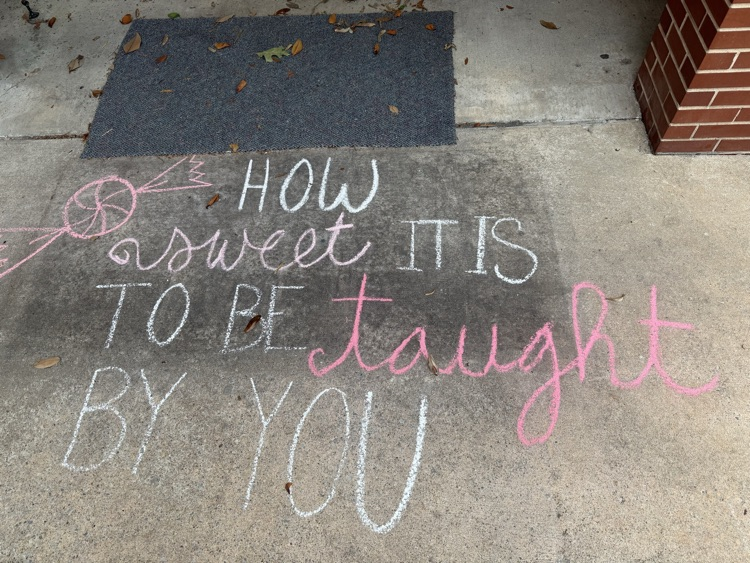 HOW
sweet IT IS
TO BE taught
BY YOU